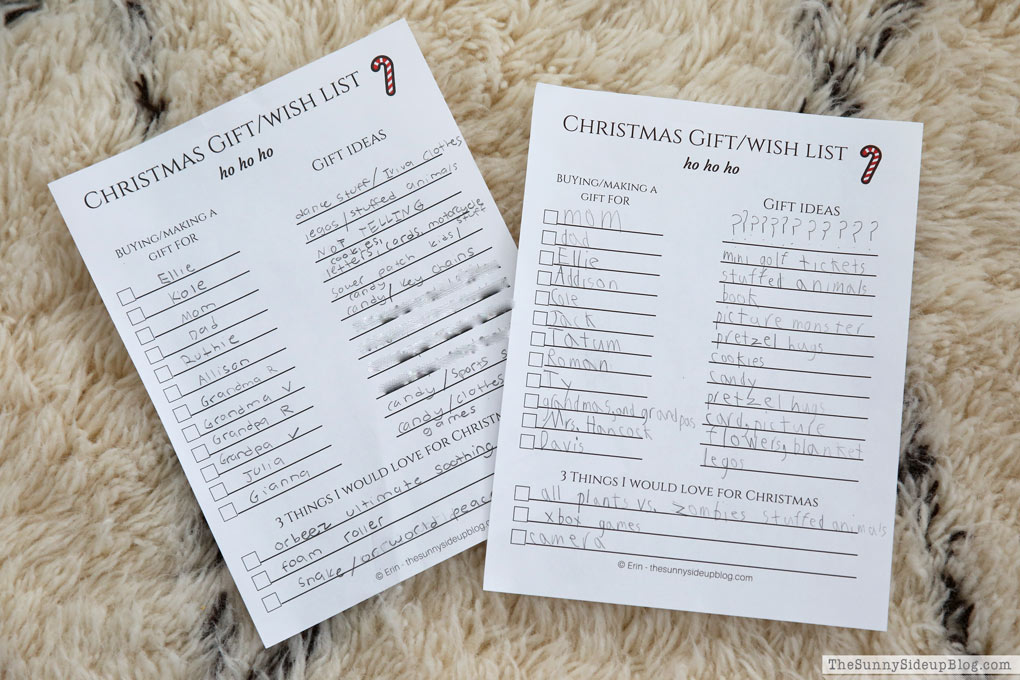 CHRISTMAS GIFT/WISH LIST
ho ho ho
BUYING/MAKING A
GIFT FOR
GIFT IDEAS
Ellie
dance stuff/Iviva clothes
Kole
legos/stuffed animals
Mom
NOT TELLING
Dad
cookies,
letters, cards, motorcycle
stuff
Ruthie
sower patch kids/
Allison
candy/key chains
candy/
Grandma R
Grandma V
Grandpa R
Grandpa V
Julia
candy/sports
Gianna
candy/clothes
games
3 THINGS I WOULD LOVE FOR CHRISTMAS
orbeez ultimate soothing
foam roller
snake/orrworld peace
© Erin - thesunnysideupblog.com
CHRISTMAS GIFT/WISH LIST
ho ho ho
BUYING/MAKING A
GIFT FOR
GIFT IDEAS
mom
???????????
dad
mini golf tickets
Ellie
stuffed animals
Addison
book
Cole
picture monster
Jack
pretzel hugs
Tatum
cookies
Roman
candy
Ty
pretzel hugs
grandmas, and grandpas
card, picture
Mrs. Hancock
flowers, blanket
Davis
legos
3 THINGS I WOULD LOVE FOR CHRISTMAS
all plants vs. zombies stuffed animals
xbox games
camera
© Erin - thesunnysideupblog.com
THESUNNYSIDEUPBLOG.COM